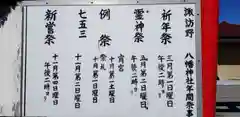 諏訪野 八幡神社年間祭事
祈年祭 三月第一日曜日 午後二時ヨリ
霊神祭 五月第二日曜日 午後二時ヨリ
例祭 宵宮 十月第一土曜日
祭礼 十月第一日曜日
七五三 十一月第二日曜日
新嘗祭 十一月第四日曜日 午後二時ヨリ